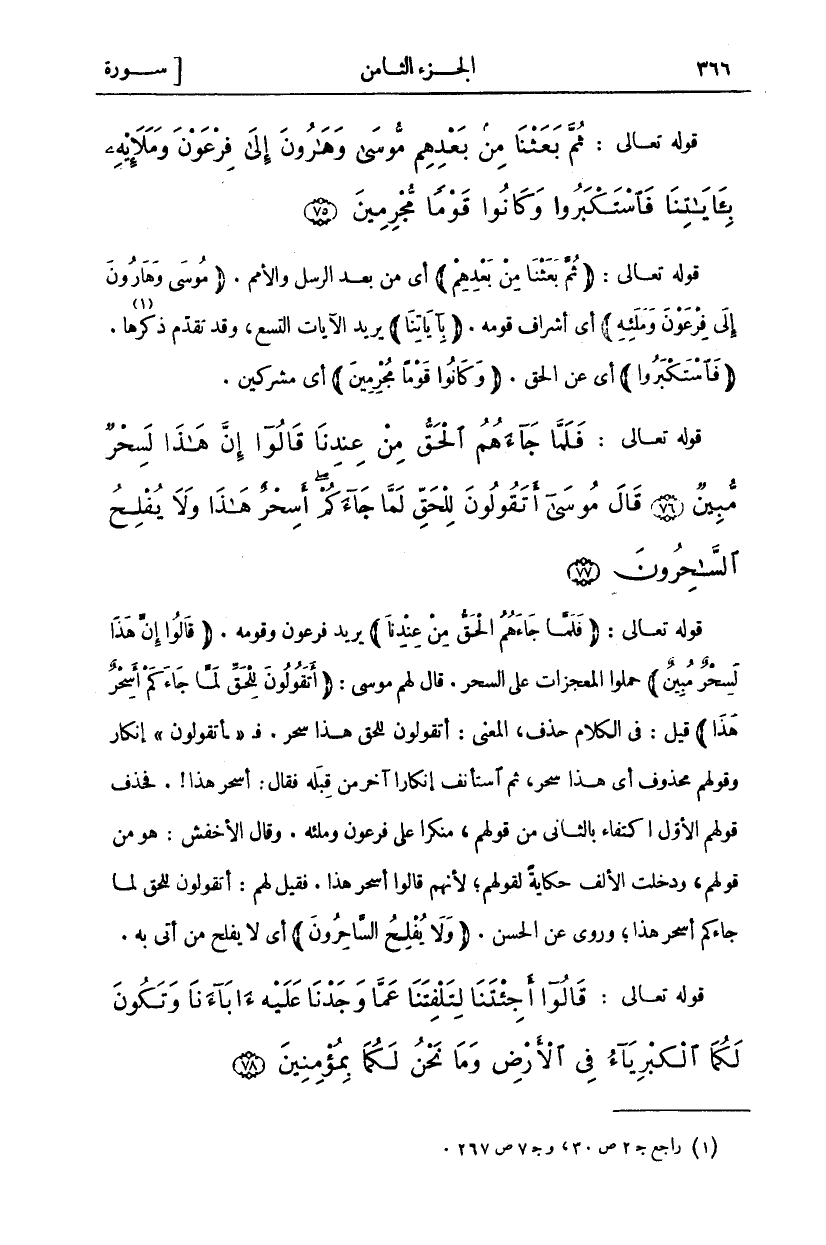 ٣٦٦ الجـــزء الثــامن [ ســـورة
قوله تعـالى : ثُمَّ بَعَثْنَا مِنۢ بَعْدِهِم مُّوسَىٰ وَهَٰرُونَ إِلَىٰ فِرْعَوْنَ وَمَلَإِيْهِۦ
بِـَٔايَٰتِنَا فَٱسْتَكْبَرُوا وَكَانُوا قَوْمًا مُّجْرِمِينَ ﴿٧٥﴾
قوله تعـالى : ﴿ ثُمَّ بَعَثْنَا مِنْ بَعْدِهِمْ ﴾ أى من بعـد الرسل والأمم . ﴿ مُوسَى وَهَارُونَ
إِلَى فِرْعَوْنَ وَمَلَئِهِ ﴾ أى أشراف قومه . ﴿ بِآيَاتِنَا ﴾ يريد الآيات التسع، وقد تقدّم ذكرها (١) .
﴿ فَٱسْتَكْبَرُوا ﴾ أى عن الحق . ﴿ وَكَانُوا قَوْمًا مُجْرِمِينَ ﴾ أى مشركين .
قوله تعـالى : فَلَمَّا جَآءَهُمُ ٱلْحَقُّ مِنْ عِندِنَا قَالُوٓا إِنَّ هَٰذَا لَسِحْرٌ
مُّبِينٌ ﴿٧٦﴾ قَالَ مُوسَىٰٓ أَتَقُولُونَ لِلْحَقِّ لَمَّا جَآءَكُمْ ۖ أَسِحْرٌ هَٰذَا وَلَا يُفْلِحُ
ٱلسَّٰحِرُونَ ﴿٧٧﴾
قوله تعـالى : ﴿ فَلَمَّـا جَاءَهُمُ الْحَقُّ مِنْ عِنْدِنَا ﴾ يريد فرعون وقومه . ﴿ قَالُوا إِنَّ هَذَا
لَسِحْرٌ مُبِينٌ ﴾ حملوا المعجزات على السحر . قال لهم موسى : ﴿ أَتَقُولُونَ لِلْحَقِّ لَمَّـا جَاءَكُمْ أَسِحْرٌ
هَذَا ﴾ قيل : فى الكلام حذف، المعنى : أتقولون للحق هــذا سحر . فـ «ـأتقولون» إنكار
وقولهم محذوف أى هــذا سحر، ثم ٱستأنف إنكارا آخر من قِبَله فقال: أسحر هذا! . فحذف
قولهم الأوّل اكتفاء بالثـانى من قولهم، منكرا على فرعون وملئه . وقال الأخفش : هو من
قولهم، ودخلت الألف حكايةً لقولهم؛ لأنهم قالوا أسحر هذا . فقيل لهم : أتقولون للحق لمـا
جاءكم أسحر هذا؛ وروى عن الحسن . ﴿ وَلَا يُفْلِحُ السَّاحِرُونَ ﴾ أى لا يفلح من أتى به .
قوله تعـالى : قَالُوٓا أَجِئْتَنَا لِتَلْفِتَنَا عَمَّا وَجَدْنَا عَلَيْهِ ءَابَآءَنَا وَتَكُونَ
لَكُمَا ٱلْكِبْرِيَآءُ فِى ٱلْأَرْضِ وَمَا نَحْنُ لَكُمَا بِمُؤْمِنِينَ ﴿٧٨﴾
(١) راجع جـ ٢ ص ٣٠، وجـ ٧ ص ٢٦٧ .